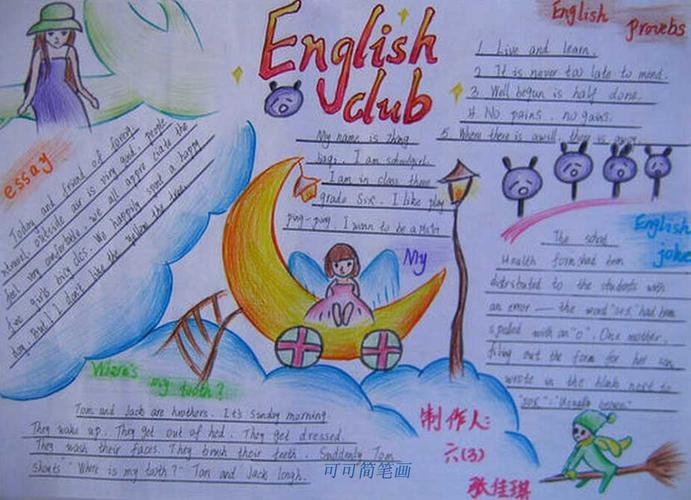 English
club
English
proverbs
1. Live and learn.
2. It is never too late to mend.
3. Well begun is half done.
4. No pains, no gains.
5. Where there is a will, there is
My name is Zhang
I am schoolgirl.
I am in class three
grade six. I like play
ping-pong. I want to be a
My
essay
Today and friend of
travel, outside air is very good, people
feel very comfortable, we all appreciate the
five girls We happily spent a happy
day. But I don't like the
English
joke
The school
Health form had been
distributed to the students with
an error — the word "sex" had been
spelled with an "o". One mother,
filling out the form for her son,
wrote in the blank next to
Where's
my tooth?
Tom and Jack are brothers. It's Sunday morning.
They wake up. They get out of bed. They get dressed.
They wash their faces. They brush their teeth. Suddenly Tom
shouts "Where is my tooth?" Tom and Jack laugh.
制作人:
六(3)
张佳琪
可可简笔画